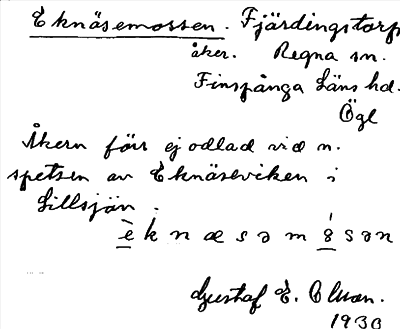 Eknäsemossen. Fjärdingstorp
åker. Regna sn.
Finspånga läns hd.
Ögl
Åkern förr ej odlad vid n.
spetsen av Eknäseviken i
Lillsjön.
è k n æ s ə m ò s ə n
Gustaf E. Olson.
1930